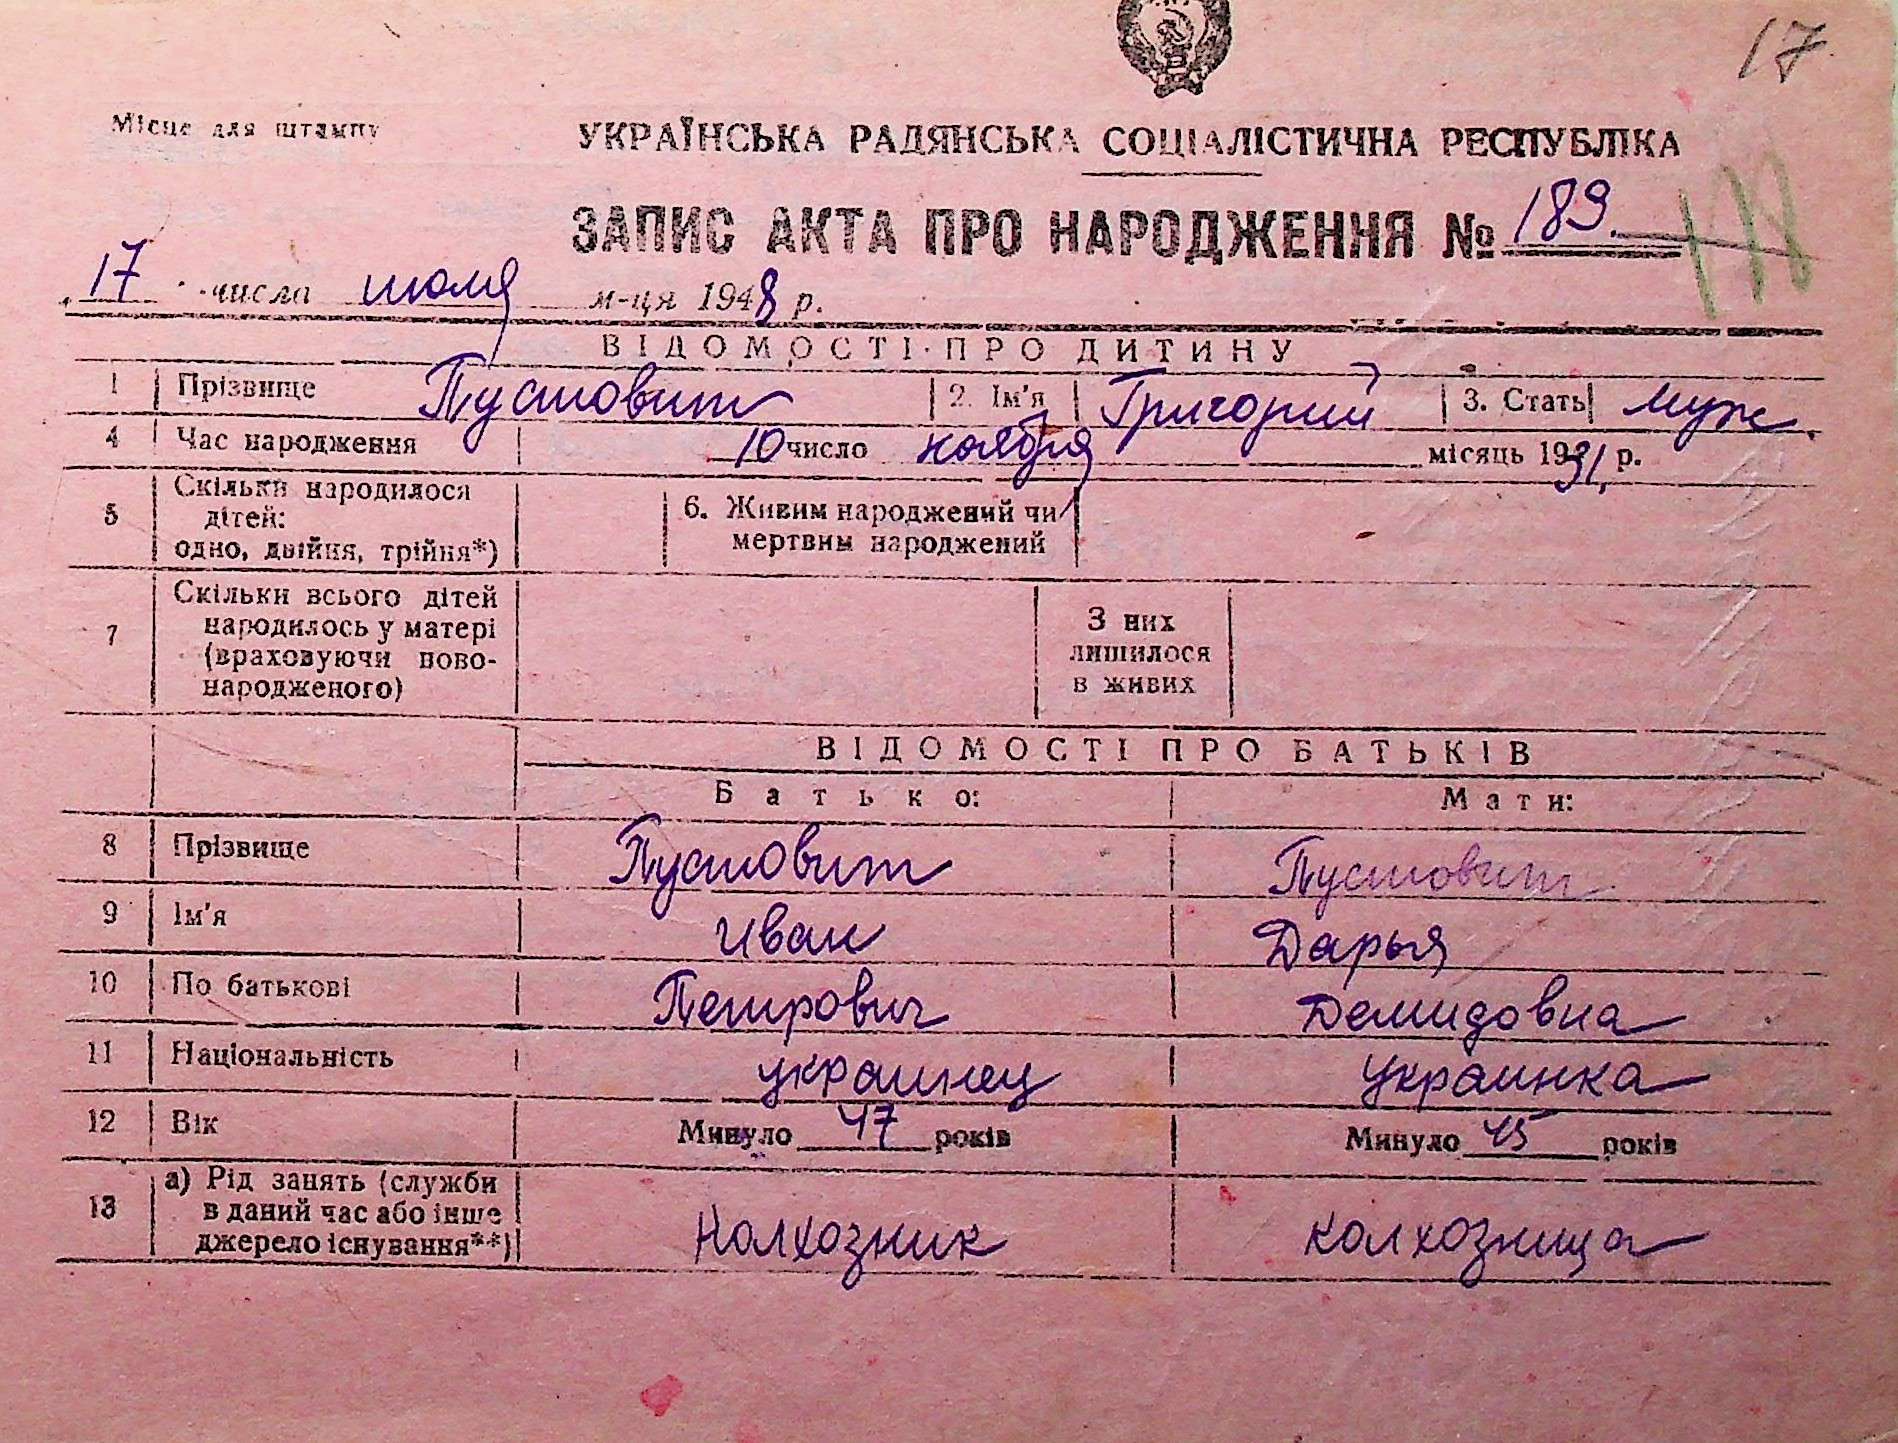 17
Місце для штампу
УКРАЇНСЬКА РАДЯНСЬКА СОЦІАЛІСТИЧНА РЕСПУБЛІКА
ЗАПИС АКТА ПРО НАРОДЖЕННЯ № 189.
118
17 числа июля м-ця 1948 р.
ВІДОМОСТІ ПРО ДИТИНУ
1 Прізвище Пустовит 2. Ім'я Григорий 3. Стать муж.
4 Час народження 10 число ноября місяць 1931, р.
5 Скільки народилося дітей: одно, двійня, трійня*) 6. Живим народжений чи мертвим народжений
7 Скільки всього дітей народилось у матері (враховуючи новонародженого) З них лишилося в живих
ВІДОМОСТІ ПРО БАТЬКІВ
Батько: Мати:
8 Прізвище Пустовит Пустовит
9 Ім'я Иван Дарья
10 По батькові Петрович Демидовна
11 Національність украинец украинка
12 Вік Минуло 47 років Минуло 45 років
13 а) Рід занять (служби в даний час або інше джерело існування**) Колхозник колхозница